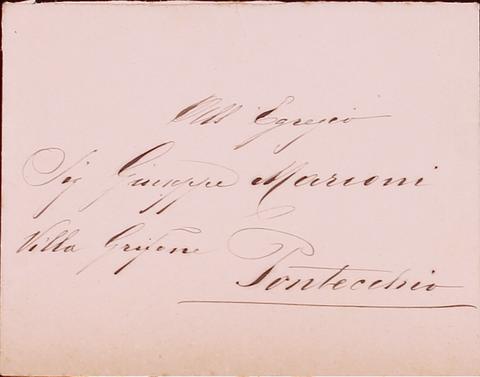 All' Egregio
Sig Giuseppe Marconi
Villa Grifone
Pontecchio